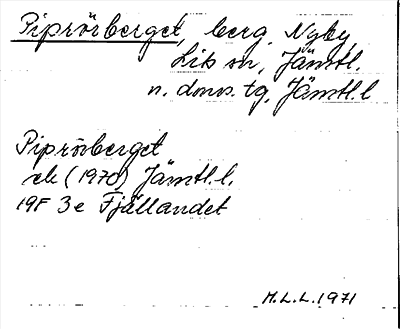 Piprörberget, berg, Nyby,
Lits sn, Jämtl.
n. doms. tg, Jämtl. l
Piprörberget
ek (1970) Jämtl. l.
19F 3e Fjällandet
M.L.L. 1971